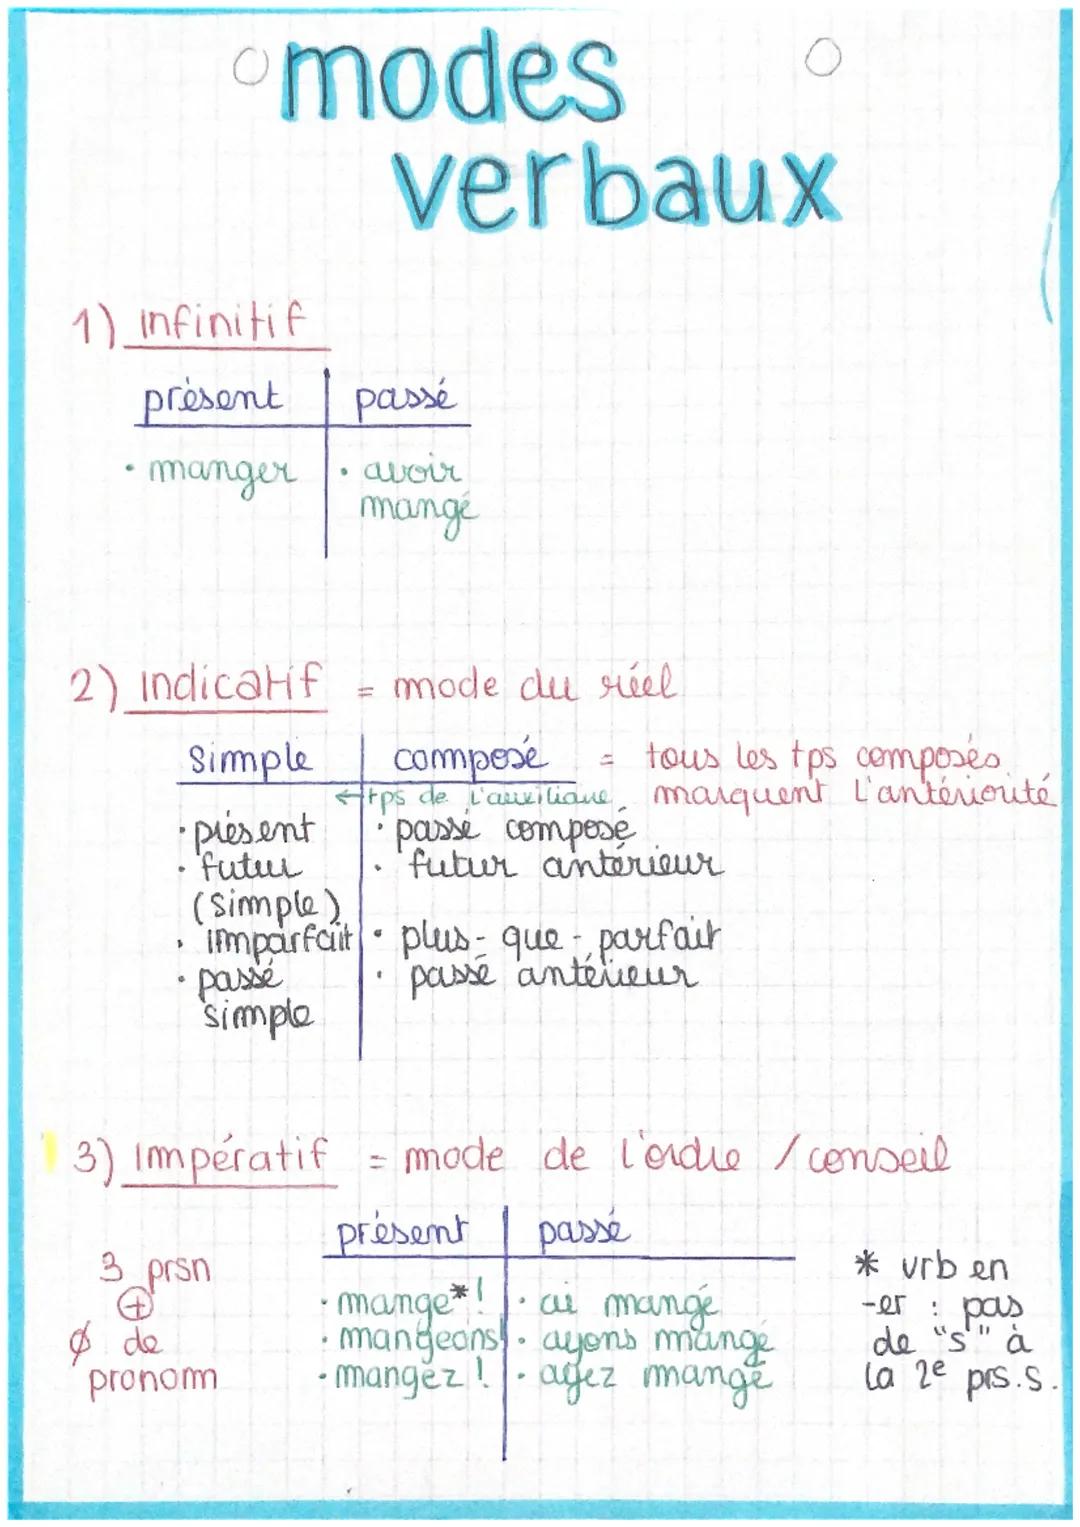 modes
verbaux
1) infinitif
présent passé
• manger • avoir
mangé
2) indicatif = mode du réel
simple composé = tous les tps composés
←tps de l'auxiliaire marquent l'antériorité
• présent • passé composé
• futur • futur antérieur
(simple)
• imparfait • plus-que-parfait
• passé • passé antérieur
simple
3) impératif = mode de l'ordre / conseil
présent passé
3 prsn * vrb en
+ • mange*! • ai mangé -er : pas
ø de • mangeons! • ayons mangé de "s" à
pronom • mangez ! • ayez mangé la 2e prs.s.